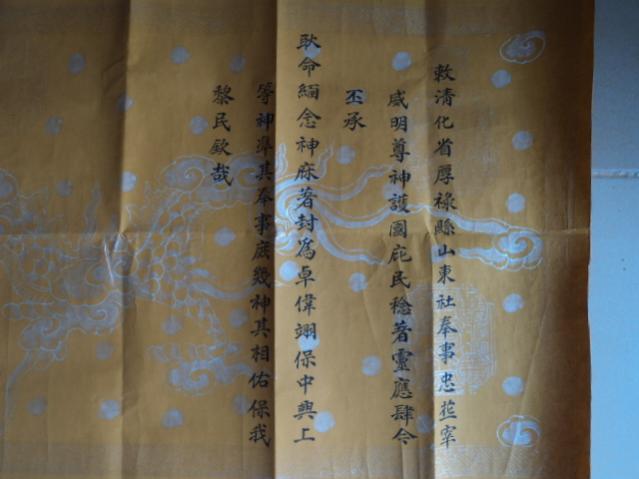 敕清化省厚祿縣山東社奉事忠宰
威明尊神護國庇民稔著靈應肆今
丕承
耿命緬念神庥著封爲卓偉翊保中興上
等神準其奉事庶幾神其相佑保我
黎民欽哉